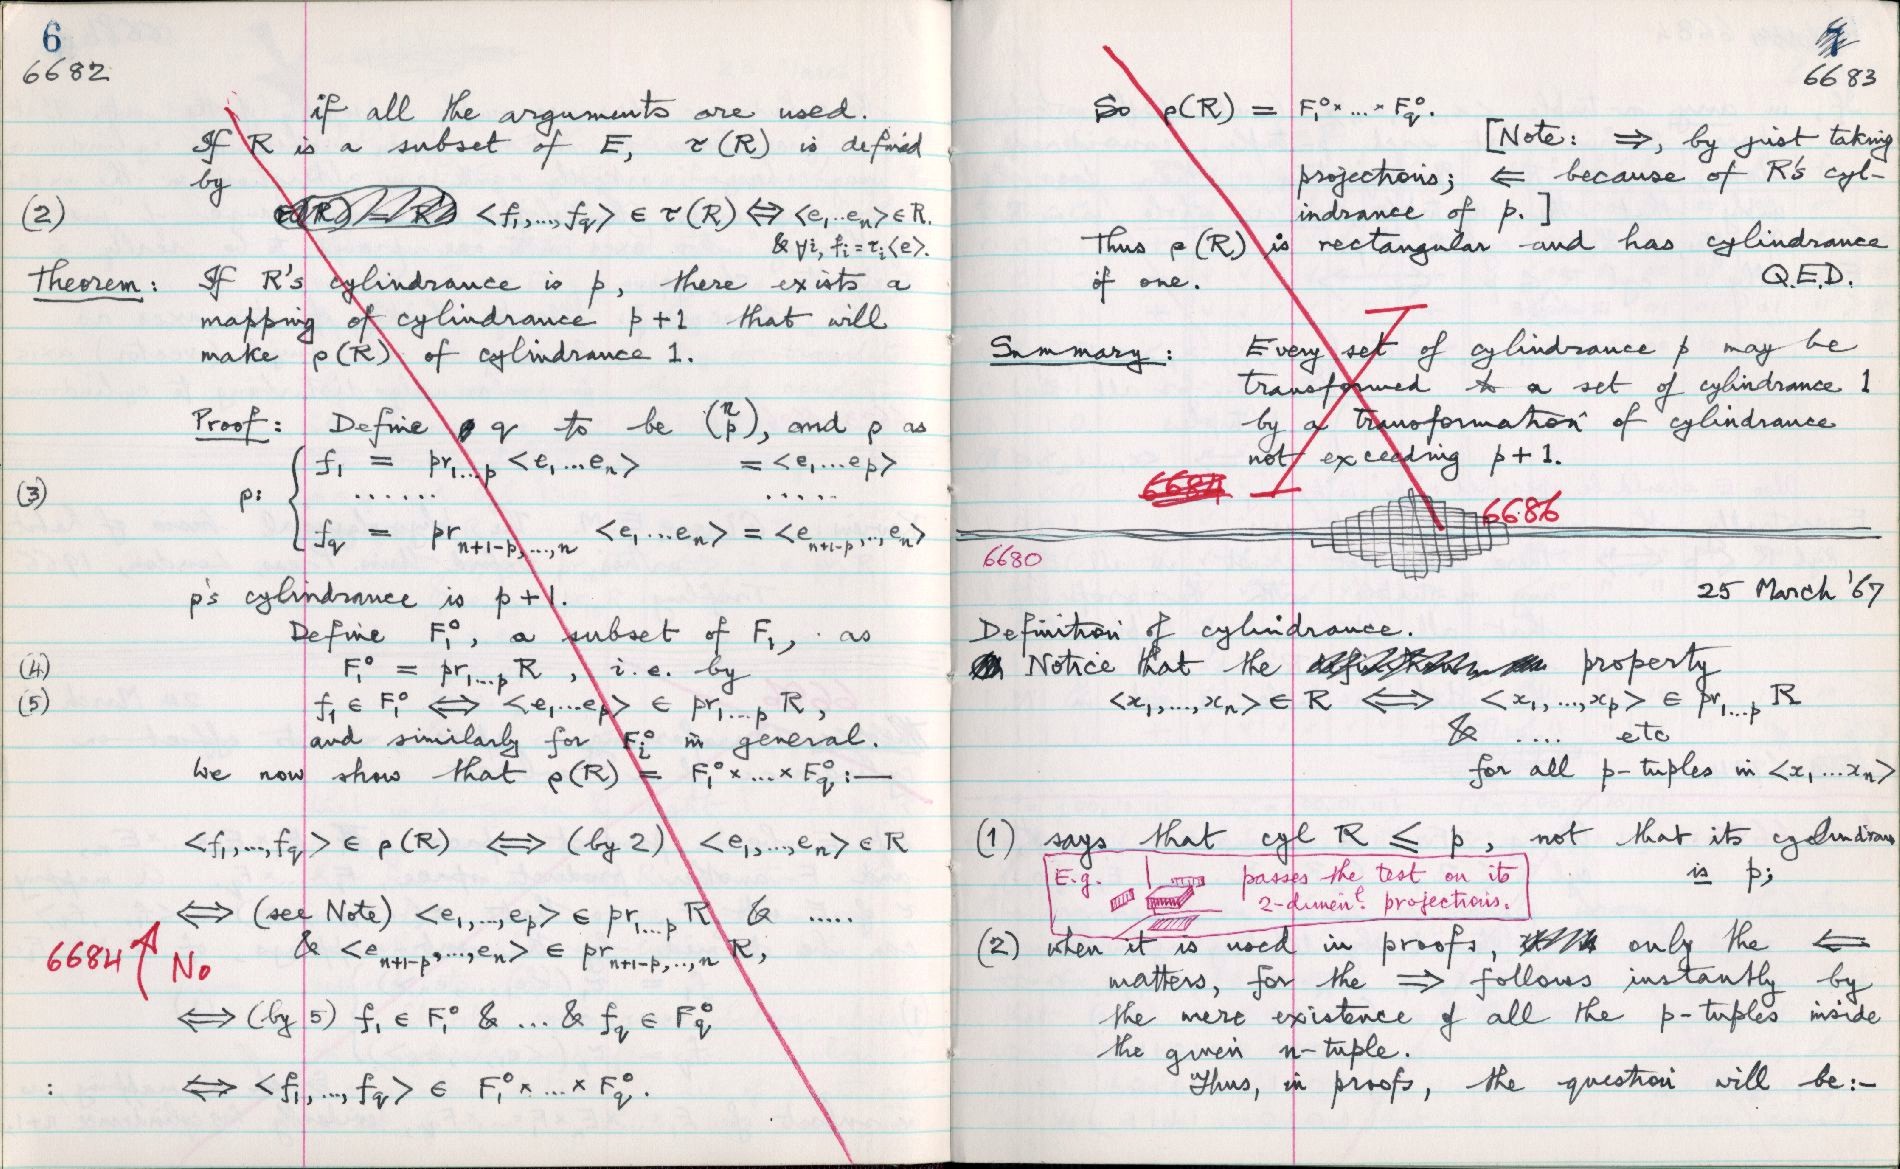 6
6682
if all the arguments are used.
If R is a subset of E, τ(R) is defined
by
(2) <f₁,...,f_q> ∈ τ(R) ⇔ <e₁...eₙ> ∈ R.
& ∀i, fᵢ = τᵢ<e>.
Theorem: If R's cylindrance is p, there exists a
mapping of cylindrance p+1 that will
make ρ(R) of cylindrance 1.
Proof: Define q to be (n p), and ρ as
f₁ = pr₁...p <e₁...eₙ> = <e₁...e_p>
(3) ρ: ...... .....
f_q = pr n+1-p,...,n <e₁...eₙ> = <e n+1-p,..,eₙ>
ρ's cylindrance is p+1.
Define F₁°, a subset of F₁, as
(4) F₁° = pr₁...p R, i.e. by
(5) f₁ ∈ F₁° ⇔ <e₁...e_p> ∈ pr₁...p R,
and similarly for Fᵢ° in general.
We now show that ρ(R) = F₁° × ... × F_q° :—
<f₁,...,f_q> ∈ ρ(R) ⇔ (by 2) <e₁,...,eₙ> ∈ R
⇔ (see Note) <e₁,...,e_p> ∈ pr₁...p R & .....
& <e n+1-p,...,eₙ> ∈ pr n+1-p,..,n R,
6684 No
⇔ (by 5) f₁ ∈ F₁° & ... & f_q ∈ F_q°
: ⇔ <f₁,...,f_q> ∈ F₁° × ... × F_q°.
7
6683
So ρ(R) = F₁° × ... × F_q°.
[Note: ⇒, by just taking
projections; ⇐ because of R's cyl-
indrance of p.]
Thus ρ(R) is rectangular and has cylindrance
of one. Q.E.D.
Summary: Every set of cylindrance p may be
transformed to a set of cylindrance 1
by a transformation of cylindrance
not exceeding p+1.
6684 6686
6680
25 March '67
Definition of cylindrance.
Notice that the property
<x₁,...,xₙ> ∈ R ⇔ <x₁,...,x_p> ∈ pr₁...p R
& .... etc
for all p-tuples in <x₁...xₙ>
(1) says that cyl R ≤ p, not that its cylindrance
is p;
E.g. passes the test on its
2-dimenl. projections.
(2) when it is used in proofs, only the ⇐
matters, for the ⇒ follows instantly by
the mere existence of all the p-tuples inside
the given n-tuple.
Thus, in proofs, the question will be:-